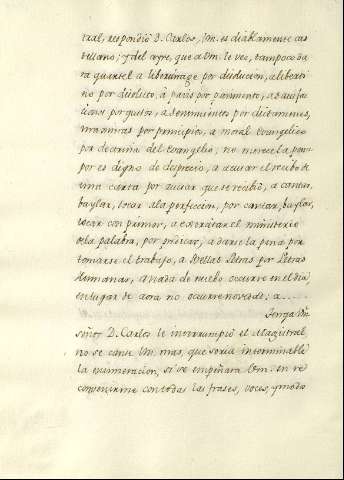 tral, respondió D. Carlos, Vm. es diablamente cas
tellano; y del ayre, que a Vm. le veo, tampoco da
ra quartel a libertinage por disolucion, a liberti
no por disoluto, a por parimento, a
por gustos, a sentimientos por dictamenes,
maximas por principios, a moral evangelico
por doctrina del evangelio; no merece la pena
por es digno de desprecio, a acusar el recibo de
una carta por avisar que se recibió, a cantar,
baylar, tocar a la perfeccion, por cantar, baylar,
tocar con primor, a exercitar el ministerio
de la palabra, por predicar, a darse la pena por
tomarse el trabajo, a Bellas Letras por Letras
Humanas, a nada de nuebo ocurre en el dia,
en lugar de aora no ocurre novedad; a......
Tenga Vm
señor D. Carlos le interrumpió el Magistral
no se canse Vm. mas, que seria interminable
la enumeracion, si se empeñara Vm. en re
convenirme con todas las frases, voces, y modo